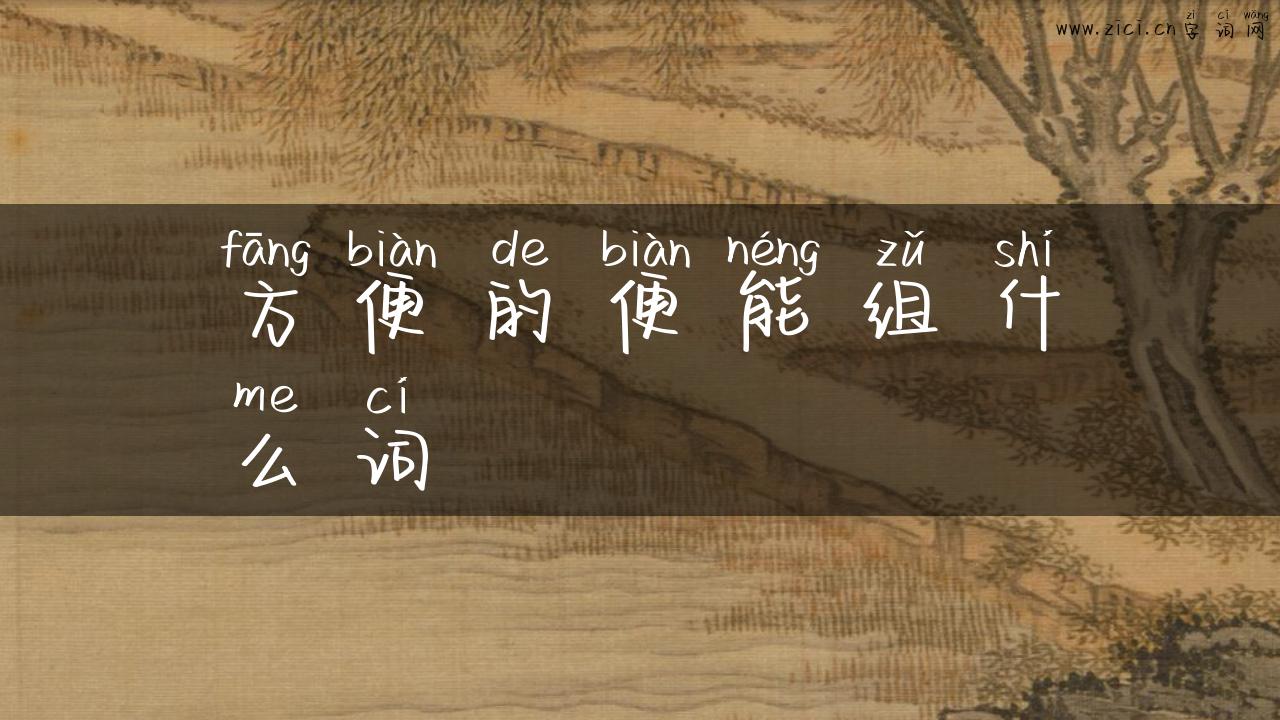 zì cí wǎng
www.zici.cn字词网
fāng biàn de biàn néng zǔ shí
方便的便能组什
me cí
么词